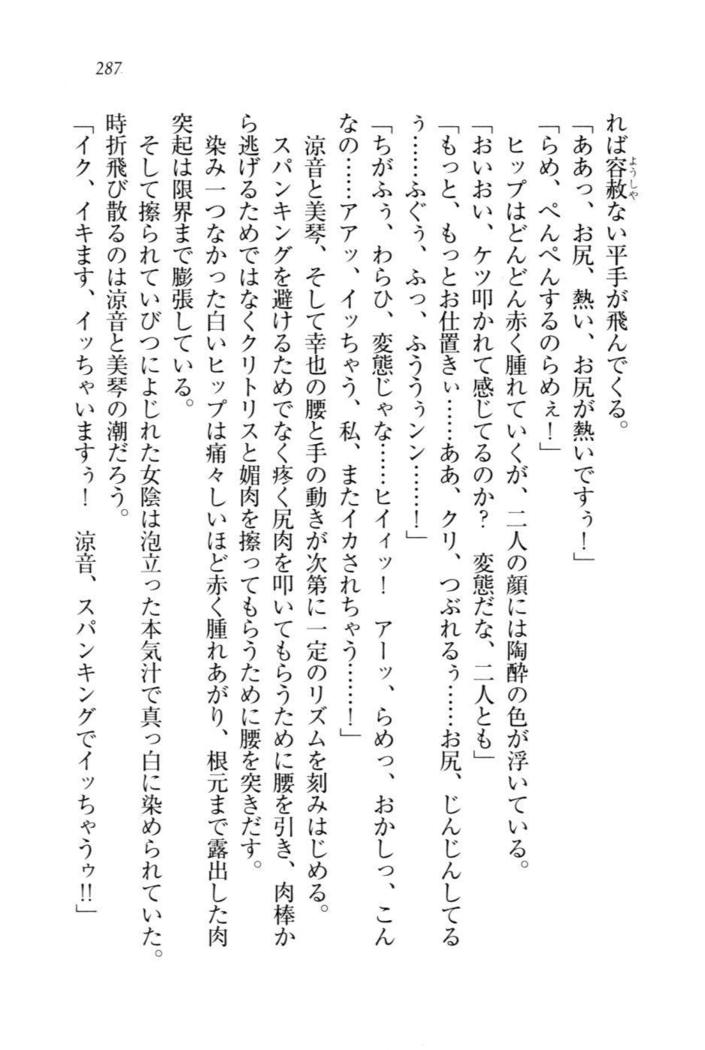 287
れば容赦ない平手が飛んでくる。
ようしゃ
「ああっ、お尻、熱い、お尻が熱いですぅ！」
「らめ、ぺんぺんするのらめぇ！」
ヒップはどんどん赤く腫れていくが、二人の顔には陶酔の色が浮いている。
「おいおい、ケツ叩かれて感じてるのか？　変態だな、二人とも」
「もっと、もっとお仕置きぃ……ああ、クリ、つぶれるぅ……お尻、じんじんしてる
ぅ……ふぐぅ、ふっ、ふううぅンン……！」
「ちがふぅ、わらひ、変態じゃな……ヒイィッ！　アーッ、らめっ、おかしっ、こん
なの……アアッ、イッちゃう、私、またイカされちゃう……！」
涼音と美琴、そして幸也の腰と手の動きが次第に一定のリズムを刻みはじめる。
スパンキングを避けるためでなく疼く尻肉を叩いてもらうために腰を引き、肉棒か
ら逃げるためではなくクリトリスと媚肉を擦ってもらうために腰を突きだす。
染み一つなかった白いヒップは痛々しいほど赤く腫れあがり、根元まで露出した肉
突起は限界まで膨張している。
そして擦られていびつによじれた女陰は泡立った本気汁で真っ白に染められていた。
時折飛び散るのは涼音と美琴の潮だろう。
「イク、イキます、イッちゃいますぅ！　涼音、スパンキングでイッちゃうゥ!!」